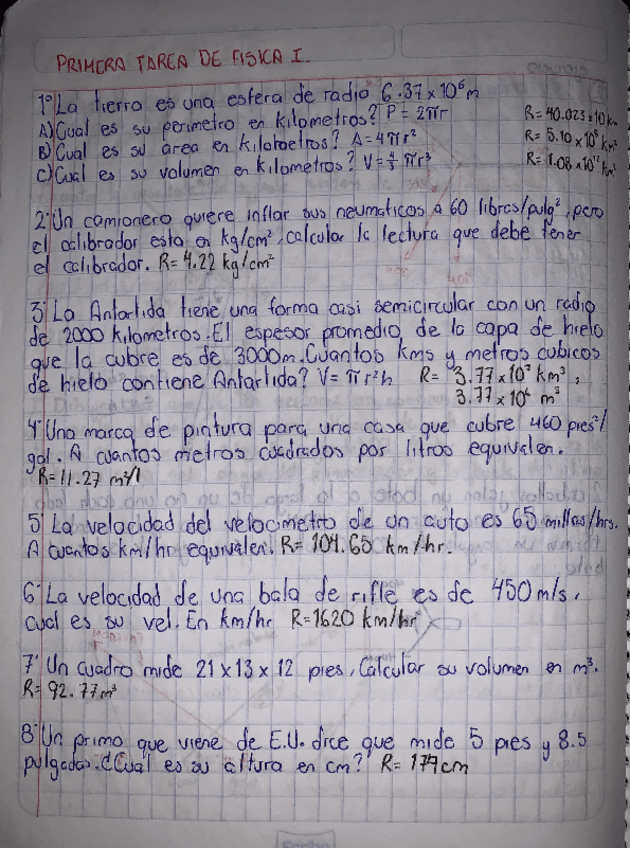 PRIMERA TAREA DE FISICA I.
1° La tierra es una esfera de radio 6.37 x 10⁶m
A) Cual es su perimetro en kilometros? P = 2πr R= 40.023 x 10 km
B) Cual es su area en kilometros? A = 4πr² R= 5.10 x 10⁸ km²
C) Cual es su volumen en kilometros? V = 4/3 πr³ R= 1.08 x 10¹² km³
2° Un camionero quiere inflar sus neumaticos a 60 libras/pulg², pero
el calibrador esta en kg/cm², calcular la lectura que debe tener
el calibrador. R= 4.22 kg/cm²
3° La Antartida tiene una forma casi semicircular con un radio
de 2000 kilometros. El espesor promedio de la capa de hielo
que la cubre es de 3000m. Cuantos kms y metros cubicos
de hielo contiene Antartida? V= πr²h R= 3.77 x 10⁷ km³,
3.77 x 10⁶ m³
4° Una marca de pintura para una casa que cubre 460 pies²/
gal. A cuantos metros cuadrados por litros equivalen.
R= 11.27 m²/l
5° La velocidad del velocimetro de un auto es 65 millas/hrs.
A cuantos km/hr equivalen. R= 104.65 km/hr.
6° La velocidad de una bala de rifle es de 450 m/s.
cual es su vel. En km/hr R= 1620 km/hr
7° Un cuadro mide 21 x 13 x 12 pies, Calcular su volumen en m³.
R= 92.77 m³
8° Un primo que viene de E.U. dice que mide 5 pies y 8.5
pulgadas. ¿Cual es su altura en cm? R= 174 cm